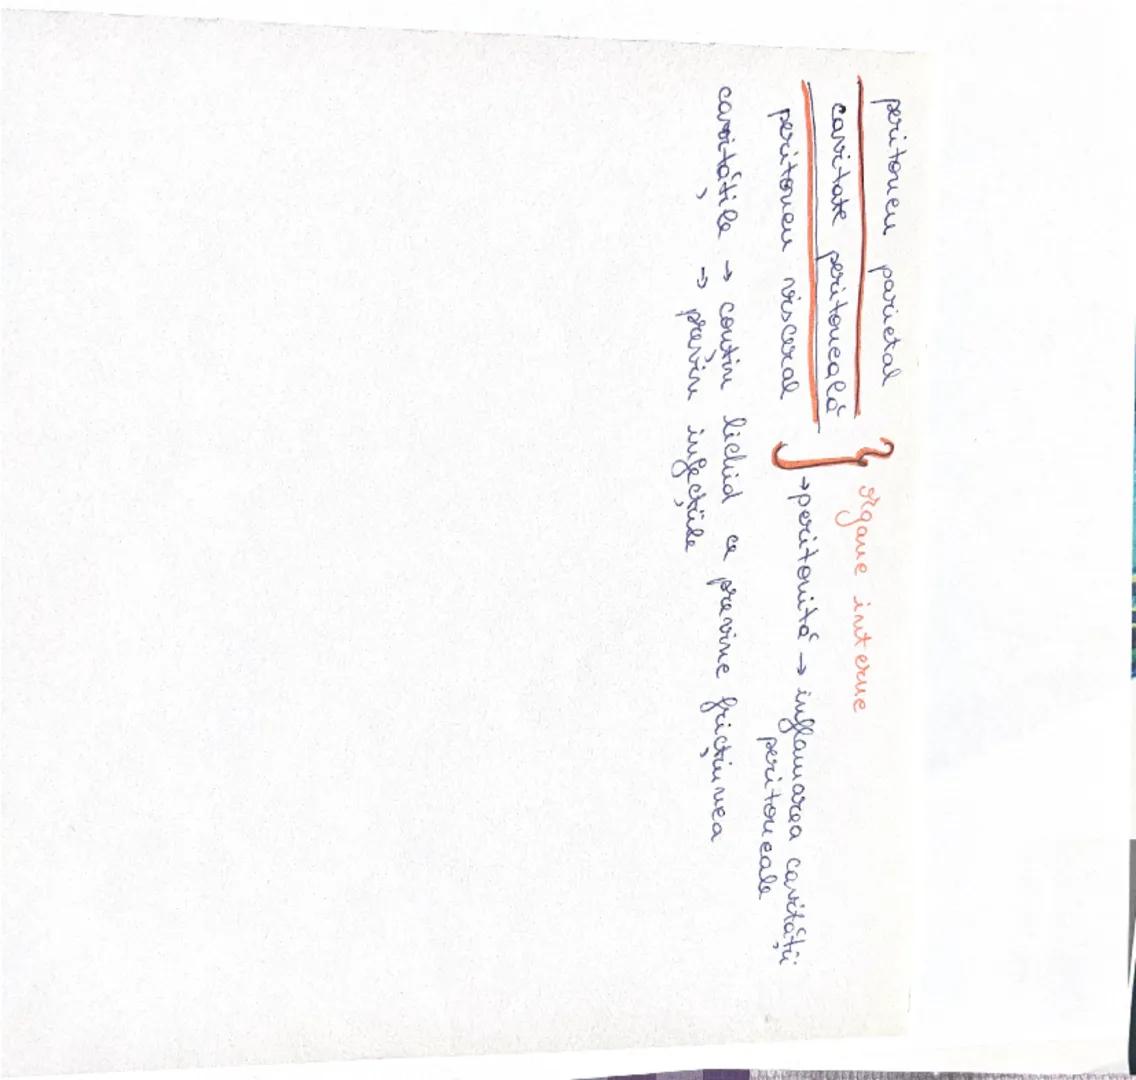 peritoneu parietal
cavitate peritoneală
peritoneu visceral
} organe interne
→ peritonită → inflamarea cavității
peritoneale
cavitățile → conțin lichid ce previne fricțiunea
→ previn infecțiile